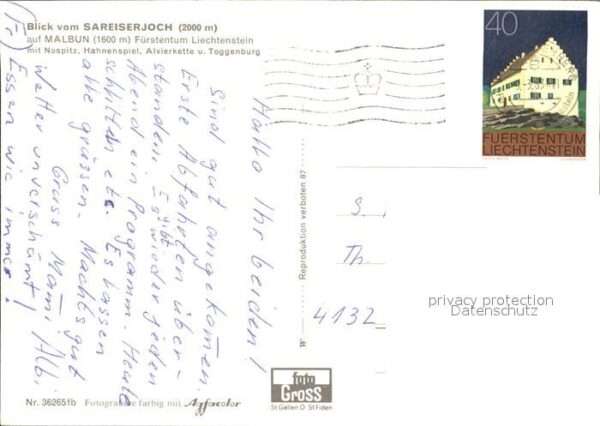 Blick vom SAREISERJOCH (2000 m)
auf MALBUN (1600 m) Fürstentum Liechtenstein
mit Nospitz, Hahnenspiel, Alvierkette u. Toggenburg
Hallo Ihr beiden!
Sind gut angekomen.
Erste Abfahrten über-
standen. Es gibt wieder jeden
Abend ein Programm. Heute
schlitteln etc. Es lassen
alle grüssen. Machts gut
Gruss Mami, Albi
Wetter unverschämt!
Essen wie immer!
Reproduktion verboten 87
40
FUERSTENTUM
LIECHTENSTEIN
S
Th
4132
privacy protection
Datenschutz
foto
Gross
St Gallen O St Fiden
Nr. 362651b Fotografie farbig mit Agfacolor